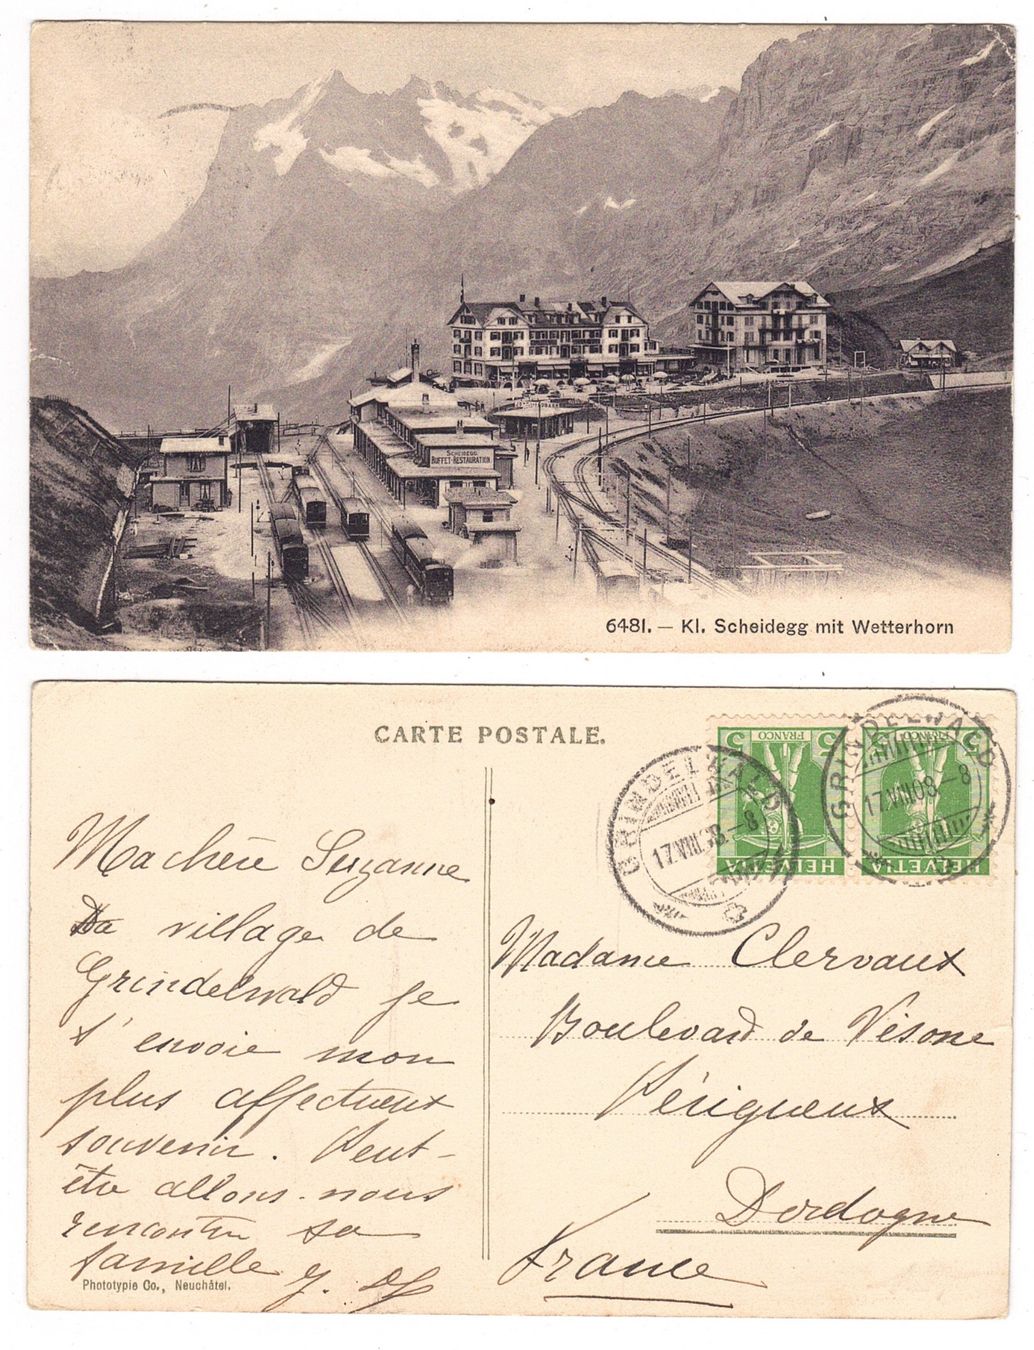 SCHEIDEGG
BUFFET-RESTAURATION
6481. — Kl. Scheidegg mit Wetterhorn
CARTE POSTALE.
5 FRANCO 5
HELVETIA
5 FRANCO 5
HELVETIA
GRINDELWALD
17.VIII.08.-8
GRINDELWALD
17.VIII.08.-8
Ma chère Suzanne
Du village de
Grindelwald je
t'envoie mon
plus affectueux
souvenir. Peut-
être allons-nous
rencontrer sa
famille
Madame Clervaux
Boulevard de Vésone
Périgueux
Dordogne
France
Phototypie Co., Neuchâtel.